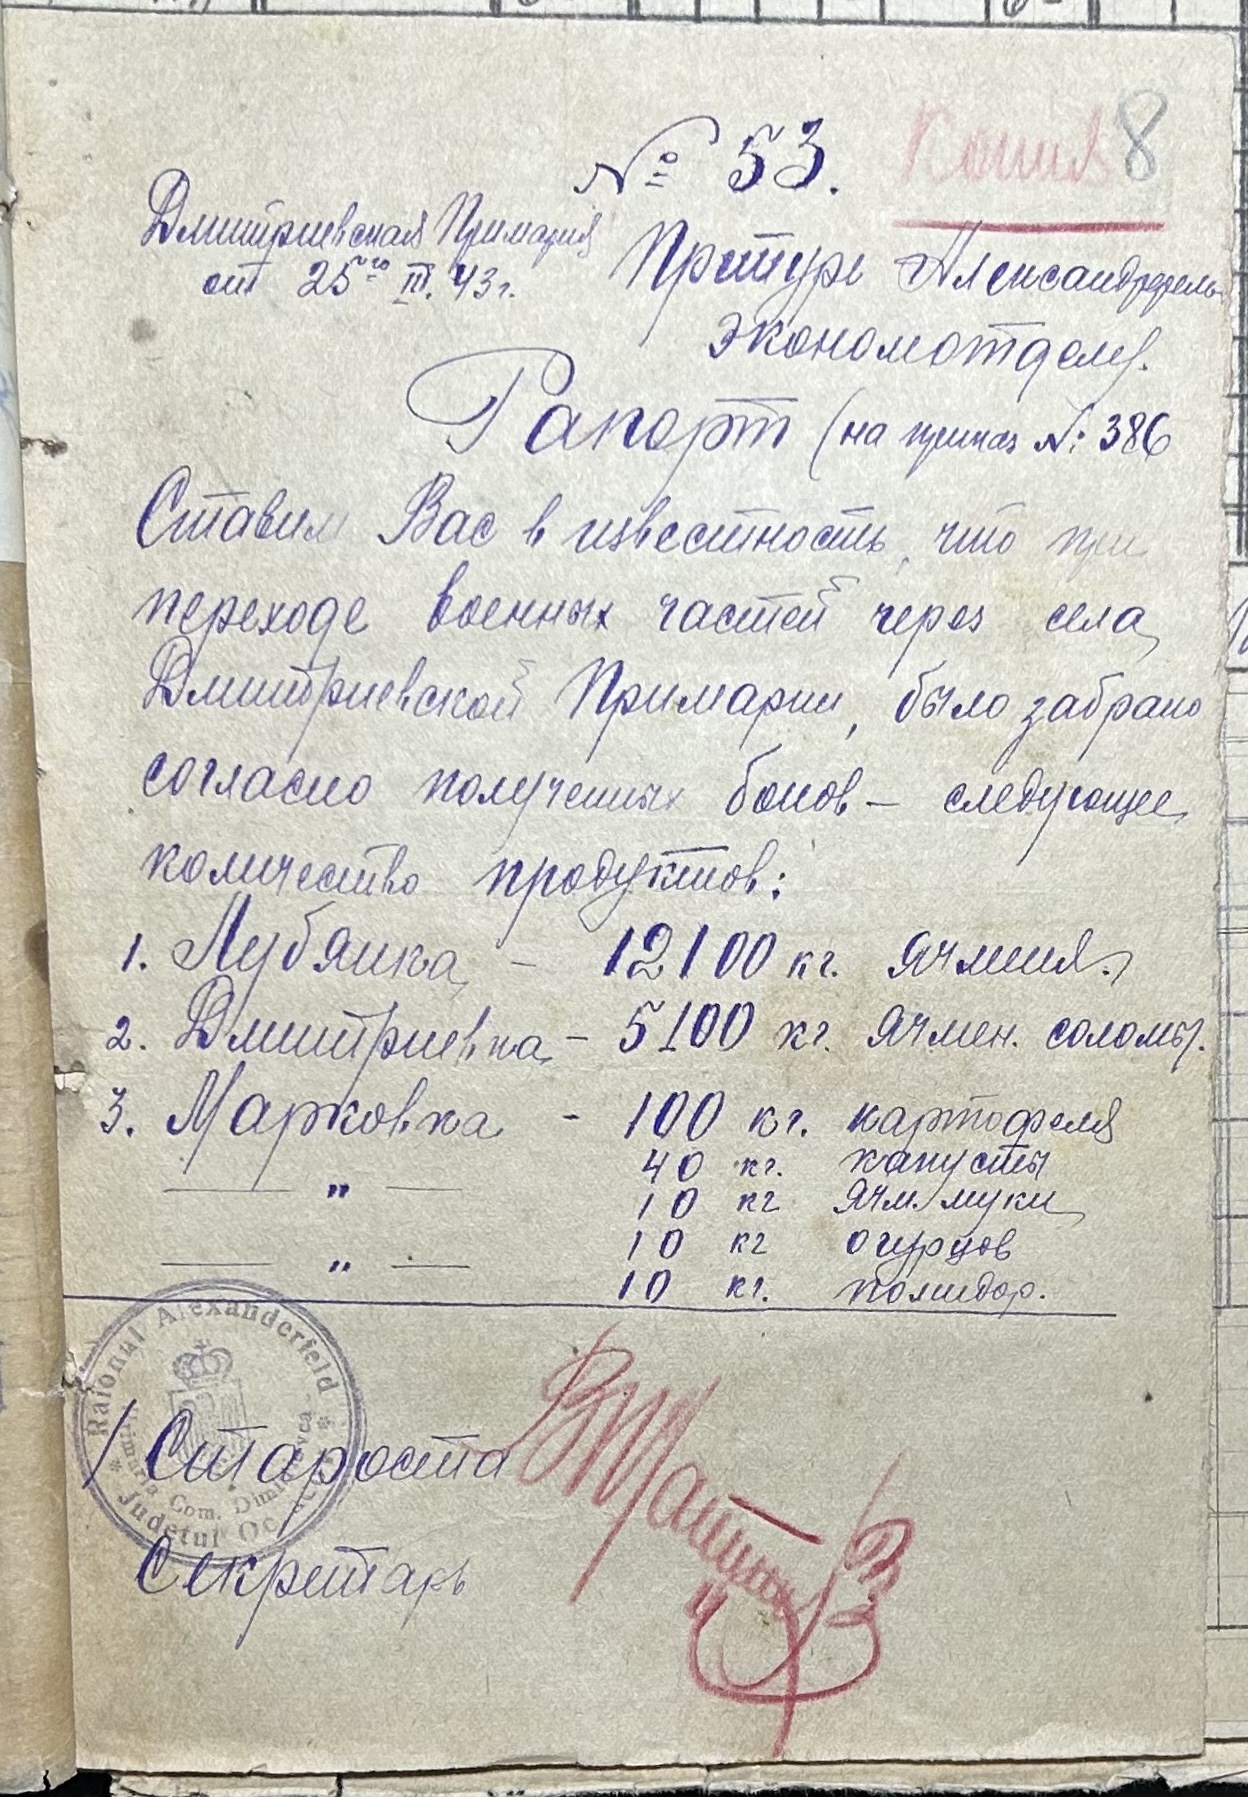 Копия 8
№ 53.
Дмитриевская Примария
от 25го III. 43г.
Претуре Александрфельд
экономотделу.
Рапорт (на приказ №: 386
Ставим Вас в известность, что при
переходе военных частей через села
Дмитриевской Примарии, было забрано
согласно полученных бонов – следующее
количество продуктов:
1. Лубянка – 12100 кг. ячменя.
2. Дмитриевка – 5100 кг. ячмен. соломы.
3. Марковка – 100 кг. картофеля
40 кг. капусты
— " — 10 кг ячм. муки
10 кг огурцов
— " — 10 кг. помидор.
Raionul Alexanderfeld
Com.
Judetul
/ Староста
Секретарь